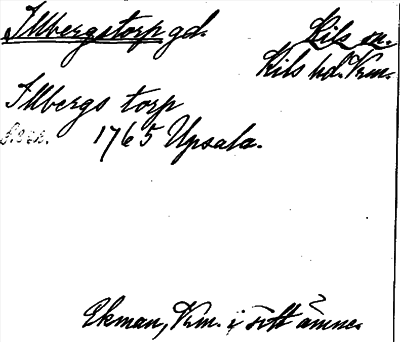 Illbergstorp gd.
Kils sn.
Kils hd. Vrm.
Illbergs torp
1765 Upsala.
Ekman, Vrm. i sitt ämne